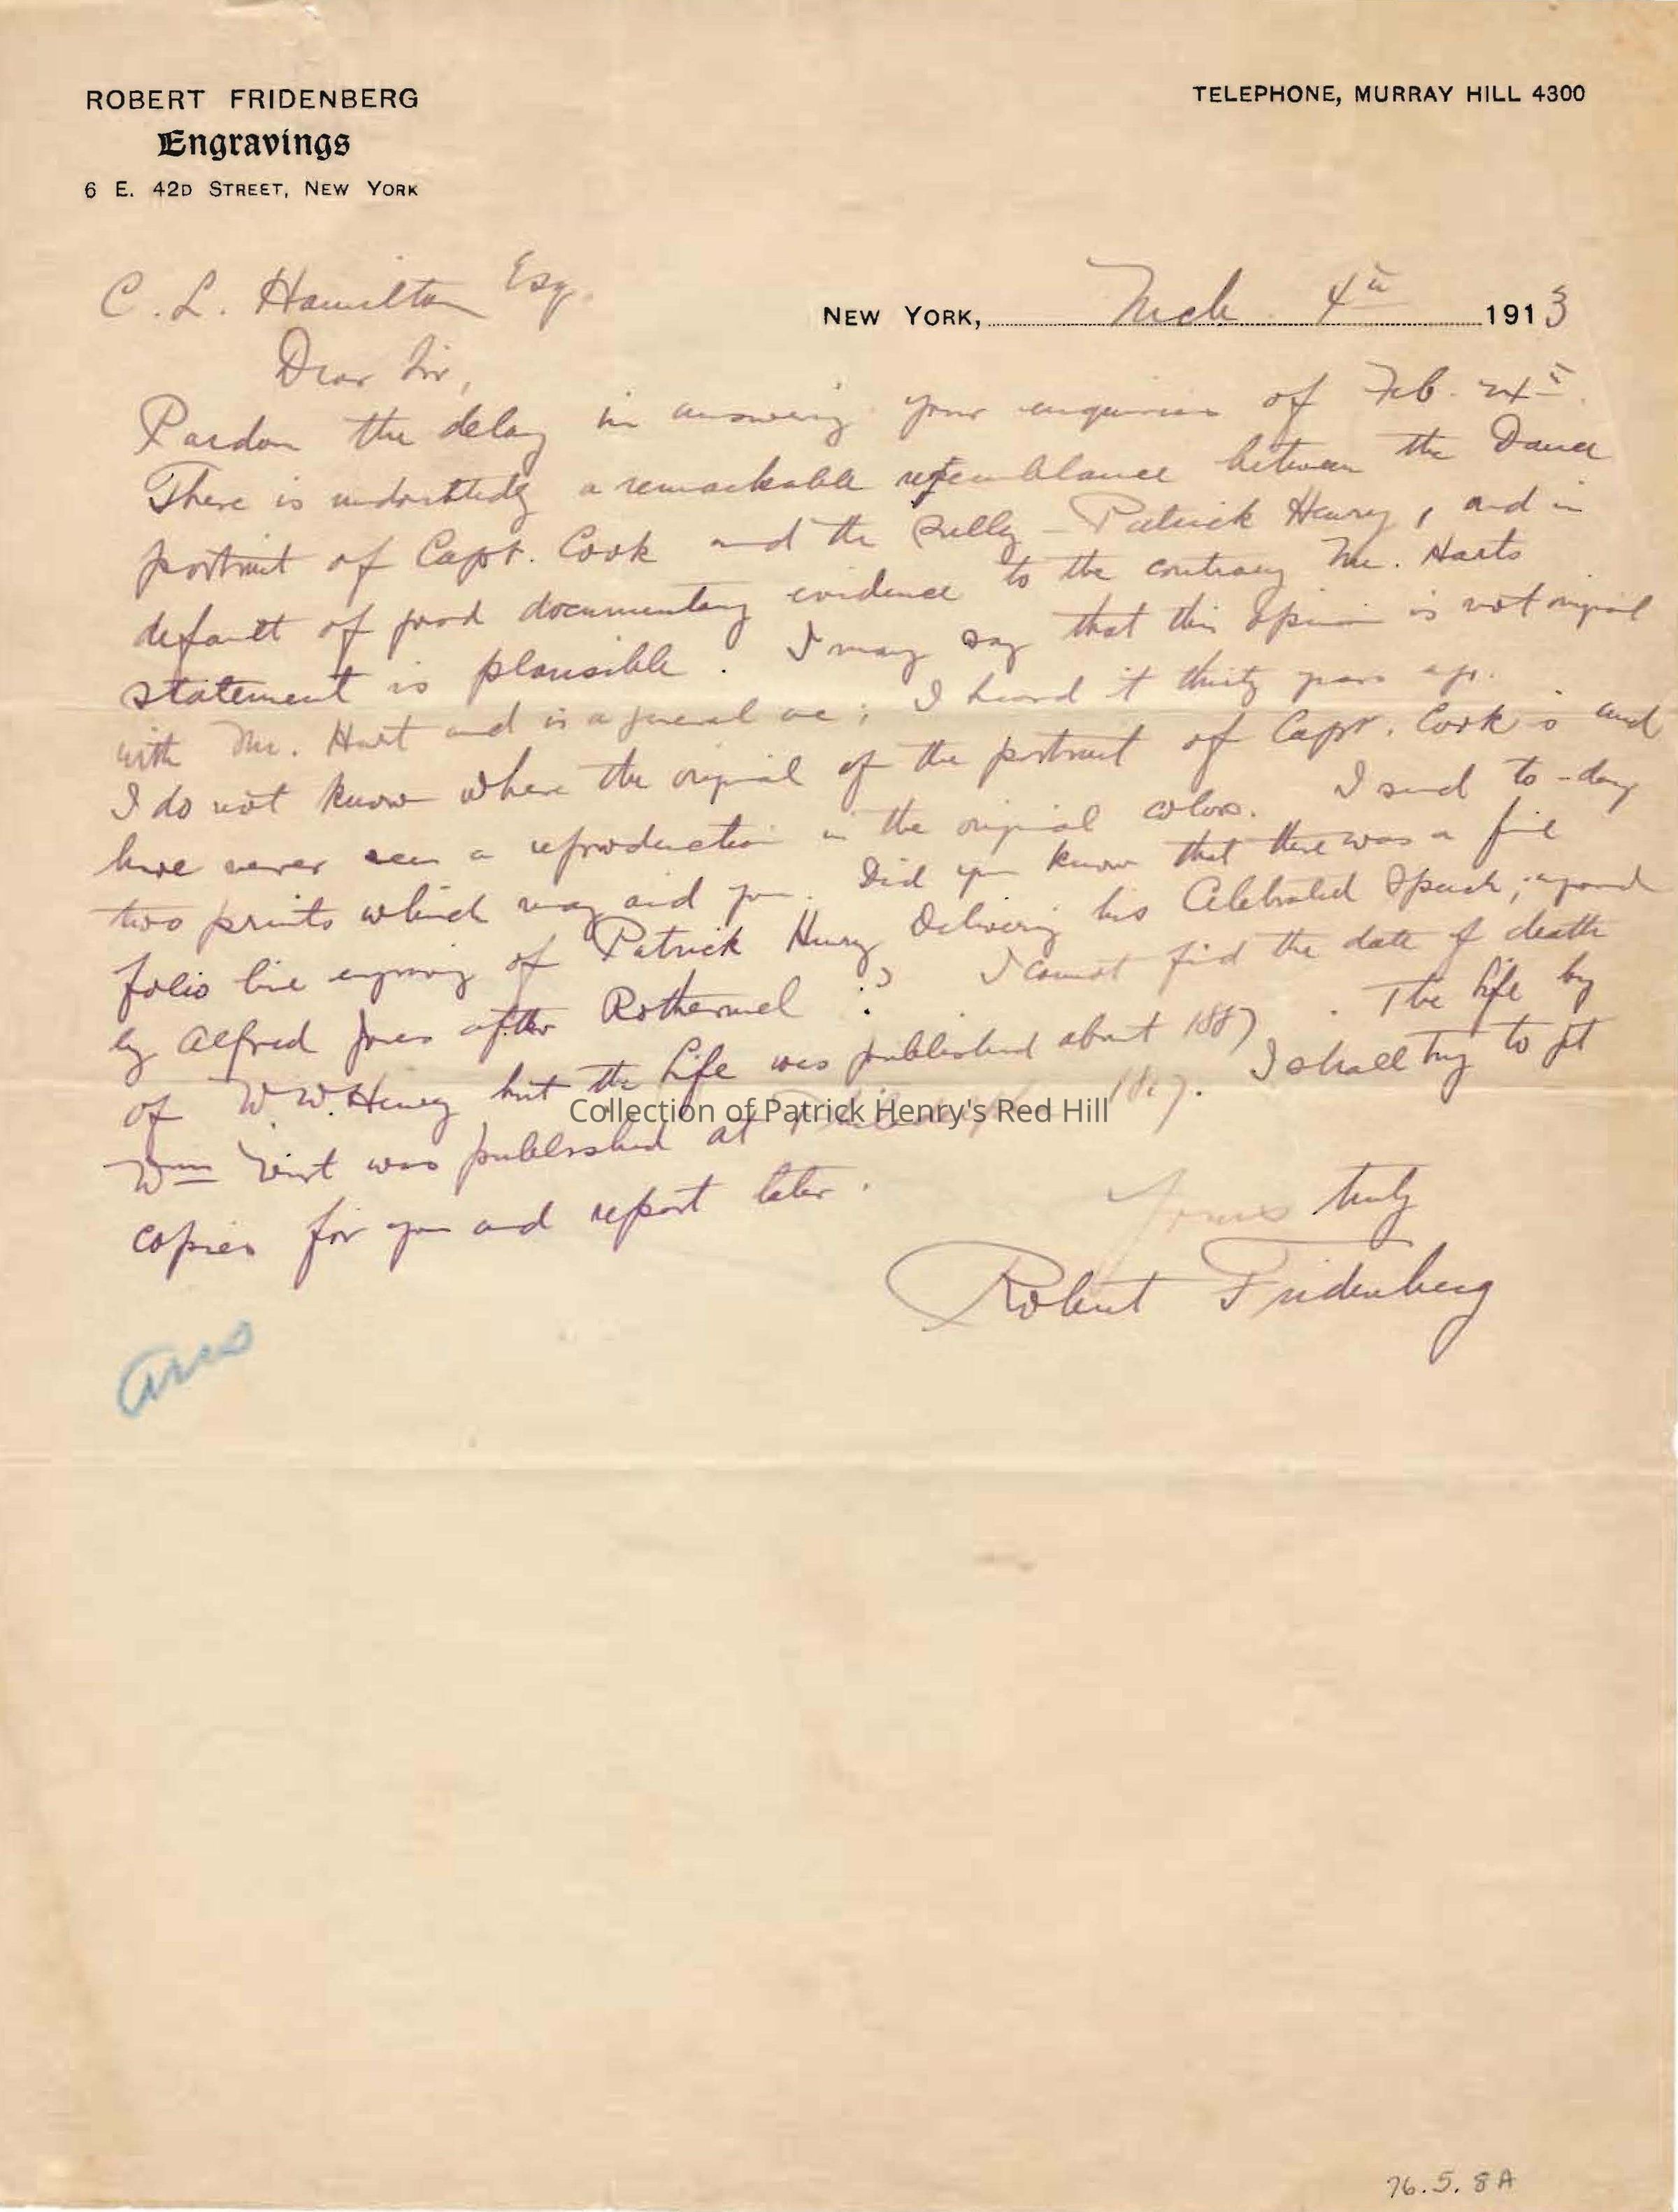 ROBERT FRIDENBERG
Engravings
6 E. 42D STREET, NEW YORK
TELEPHONE, MURRAY HILL 4300
NEW YORK, Mch 4th 1913
C. L. Hamilton Esq.
Dear Sir,
Pardon the delay in answering your enquiries of Feb. 24th.
There is undoubtedly a remarkable resemblance between the Dance
portrait of Capt. Cook and the Sully-Patrick Henry, and in
default of good documentary evidence to the contrary Mr. Harts
statement is plausible. I may say that this opinion is not original
with Mr. Hart and is a general one; I heard it thirty years ago.
I do not know where the original of the portrait of Capt. Cook is and
have never seen a reproduction in the original colors. I send to-day
two prints which may aid you. Did you know that there was a fine
folio line engraving of Patrick Henry Delivering his Celebrated Speech,
by Alfred Jones after Rothermel? I cannot find the date of death
of W. W. Henry but the Life was published about 1887. The life by
Wm Wirt was published at I shall try to get
copies for you and report later.
Yours truly
Robert Fridenberg
ans
Collection of Patrick Henry's Red Hill
76.5.8A